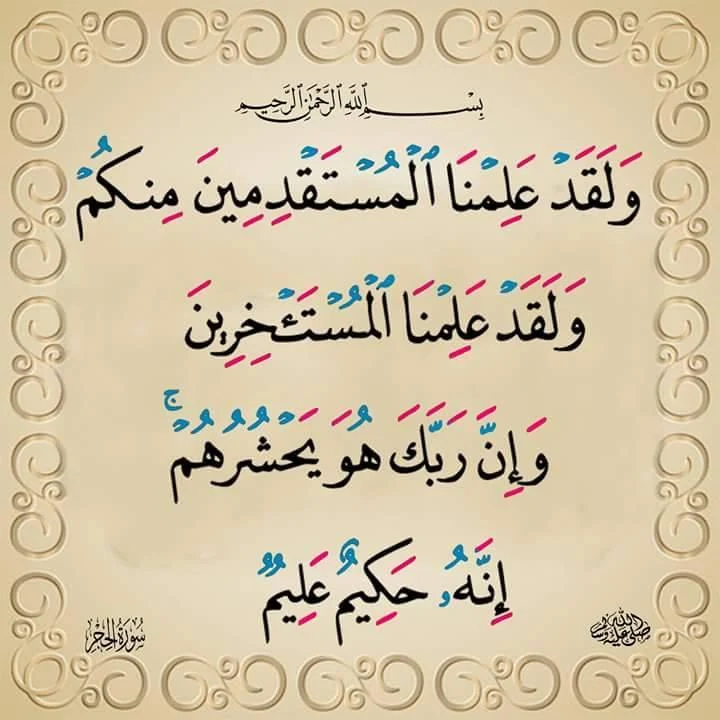 بِسْمِ ٱللَّهِ ٱلرَّحْمَٰنِ ٱلرَّحِيمِ
وَلَقَدْ عَلِمْنَا ٱلْمُسْتَقْدِمِينَ مِنكُمْ
وَلَقَدْ عَلِمْنَا ٱلْمُسْتَـْٔخِرِينَ
وَإِنَّ رَبَّكَ هُوَ يَحْشُرُهُمْ ۚ
إِنَّهُۥ حَكِيمٌ عَلِيمٌ
صلى الله عليه وسلم
سُورَةُ الحِجْرِ